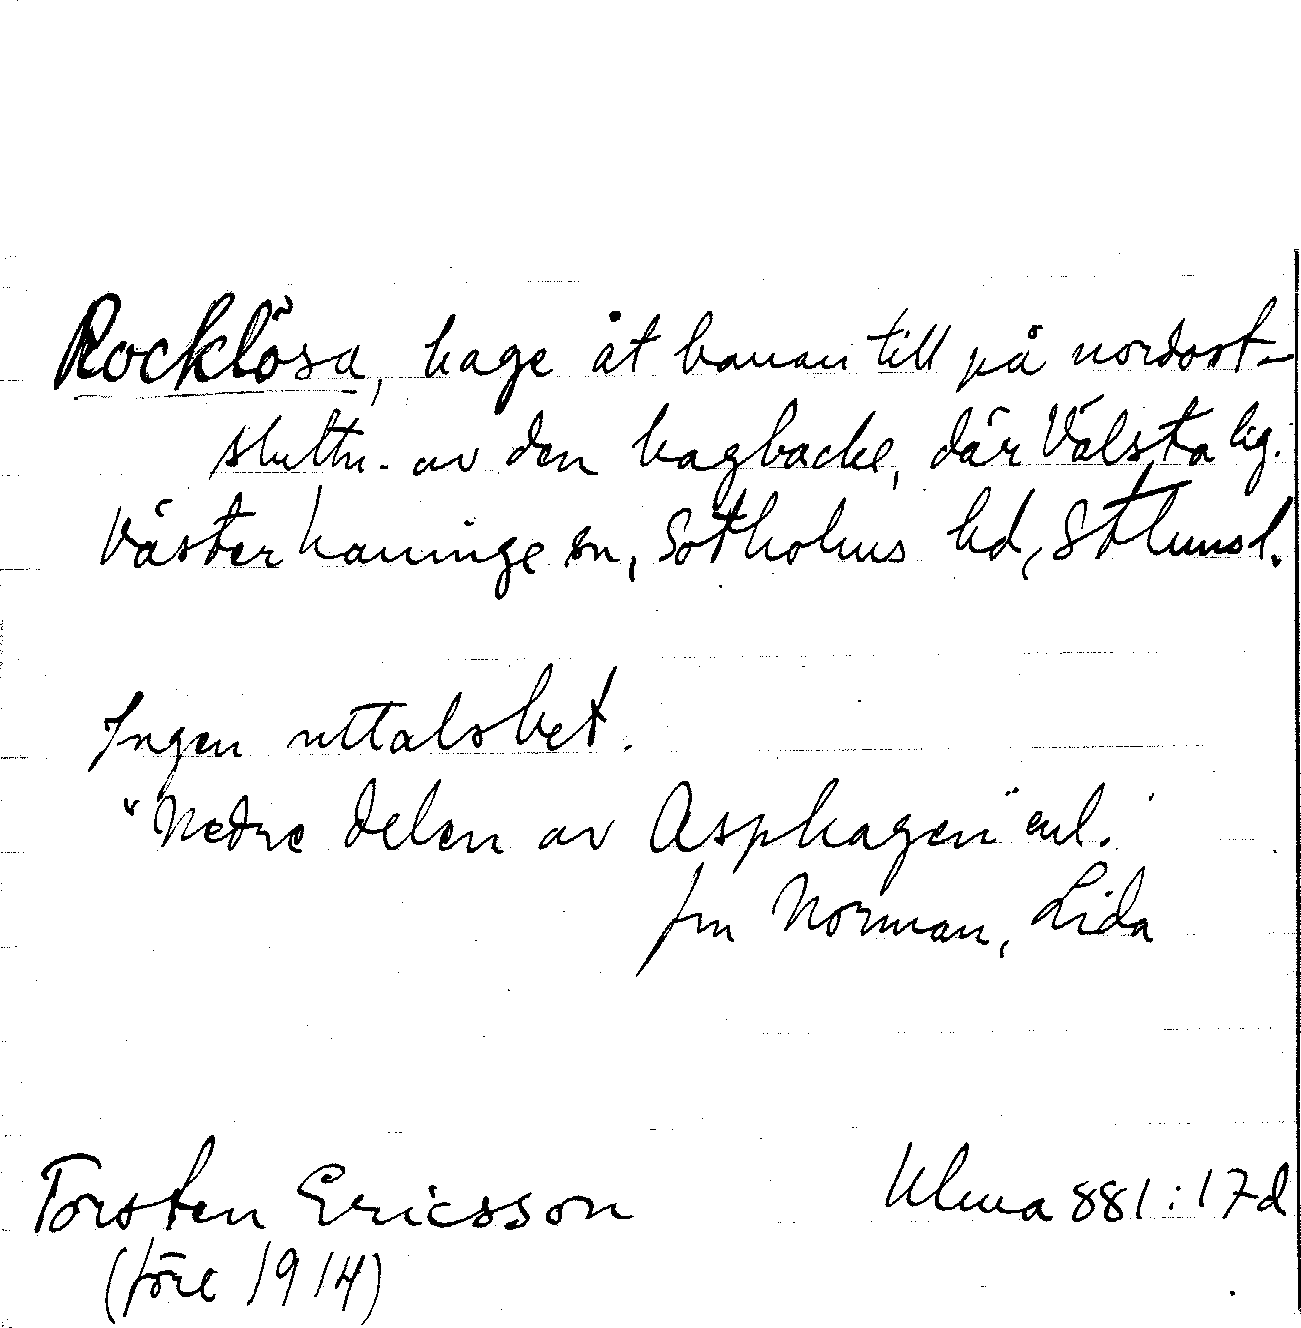 Rocklösa, hage åt banan till på nordost-
sluttn. av den hagbacke, där Välsta lig.
Västerhaninge sn, Sotholms hd, Sthlmsl.
Ingen uttalsbet.
"Nedre delen av Asphagen" enl.
frn Norman, Lida
Torsten Ericsson
Ulma 881:17d
(före 1914)